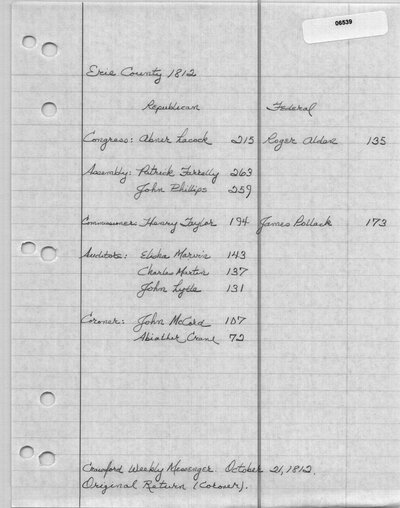 06539
Erie County 1812
Republican Federal
Congress: Abner Lacock 215 Roger Alden 135
Assembly: Patrick Farrelly 263
John Phillips 259
Commissioner: Henry Taylor 194 James Pollock 173
Auditors: Elisha Marvin 143
Charles Martin 137
John Lytle 131
Coroner: John McCord 107
Abiather Crane 72
Crawford Weekly Messenger October 21, 1812.
Original Return (Coroner).